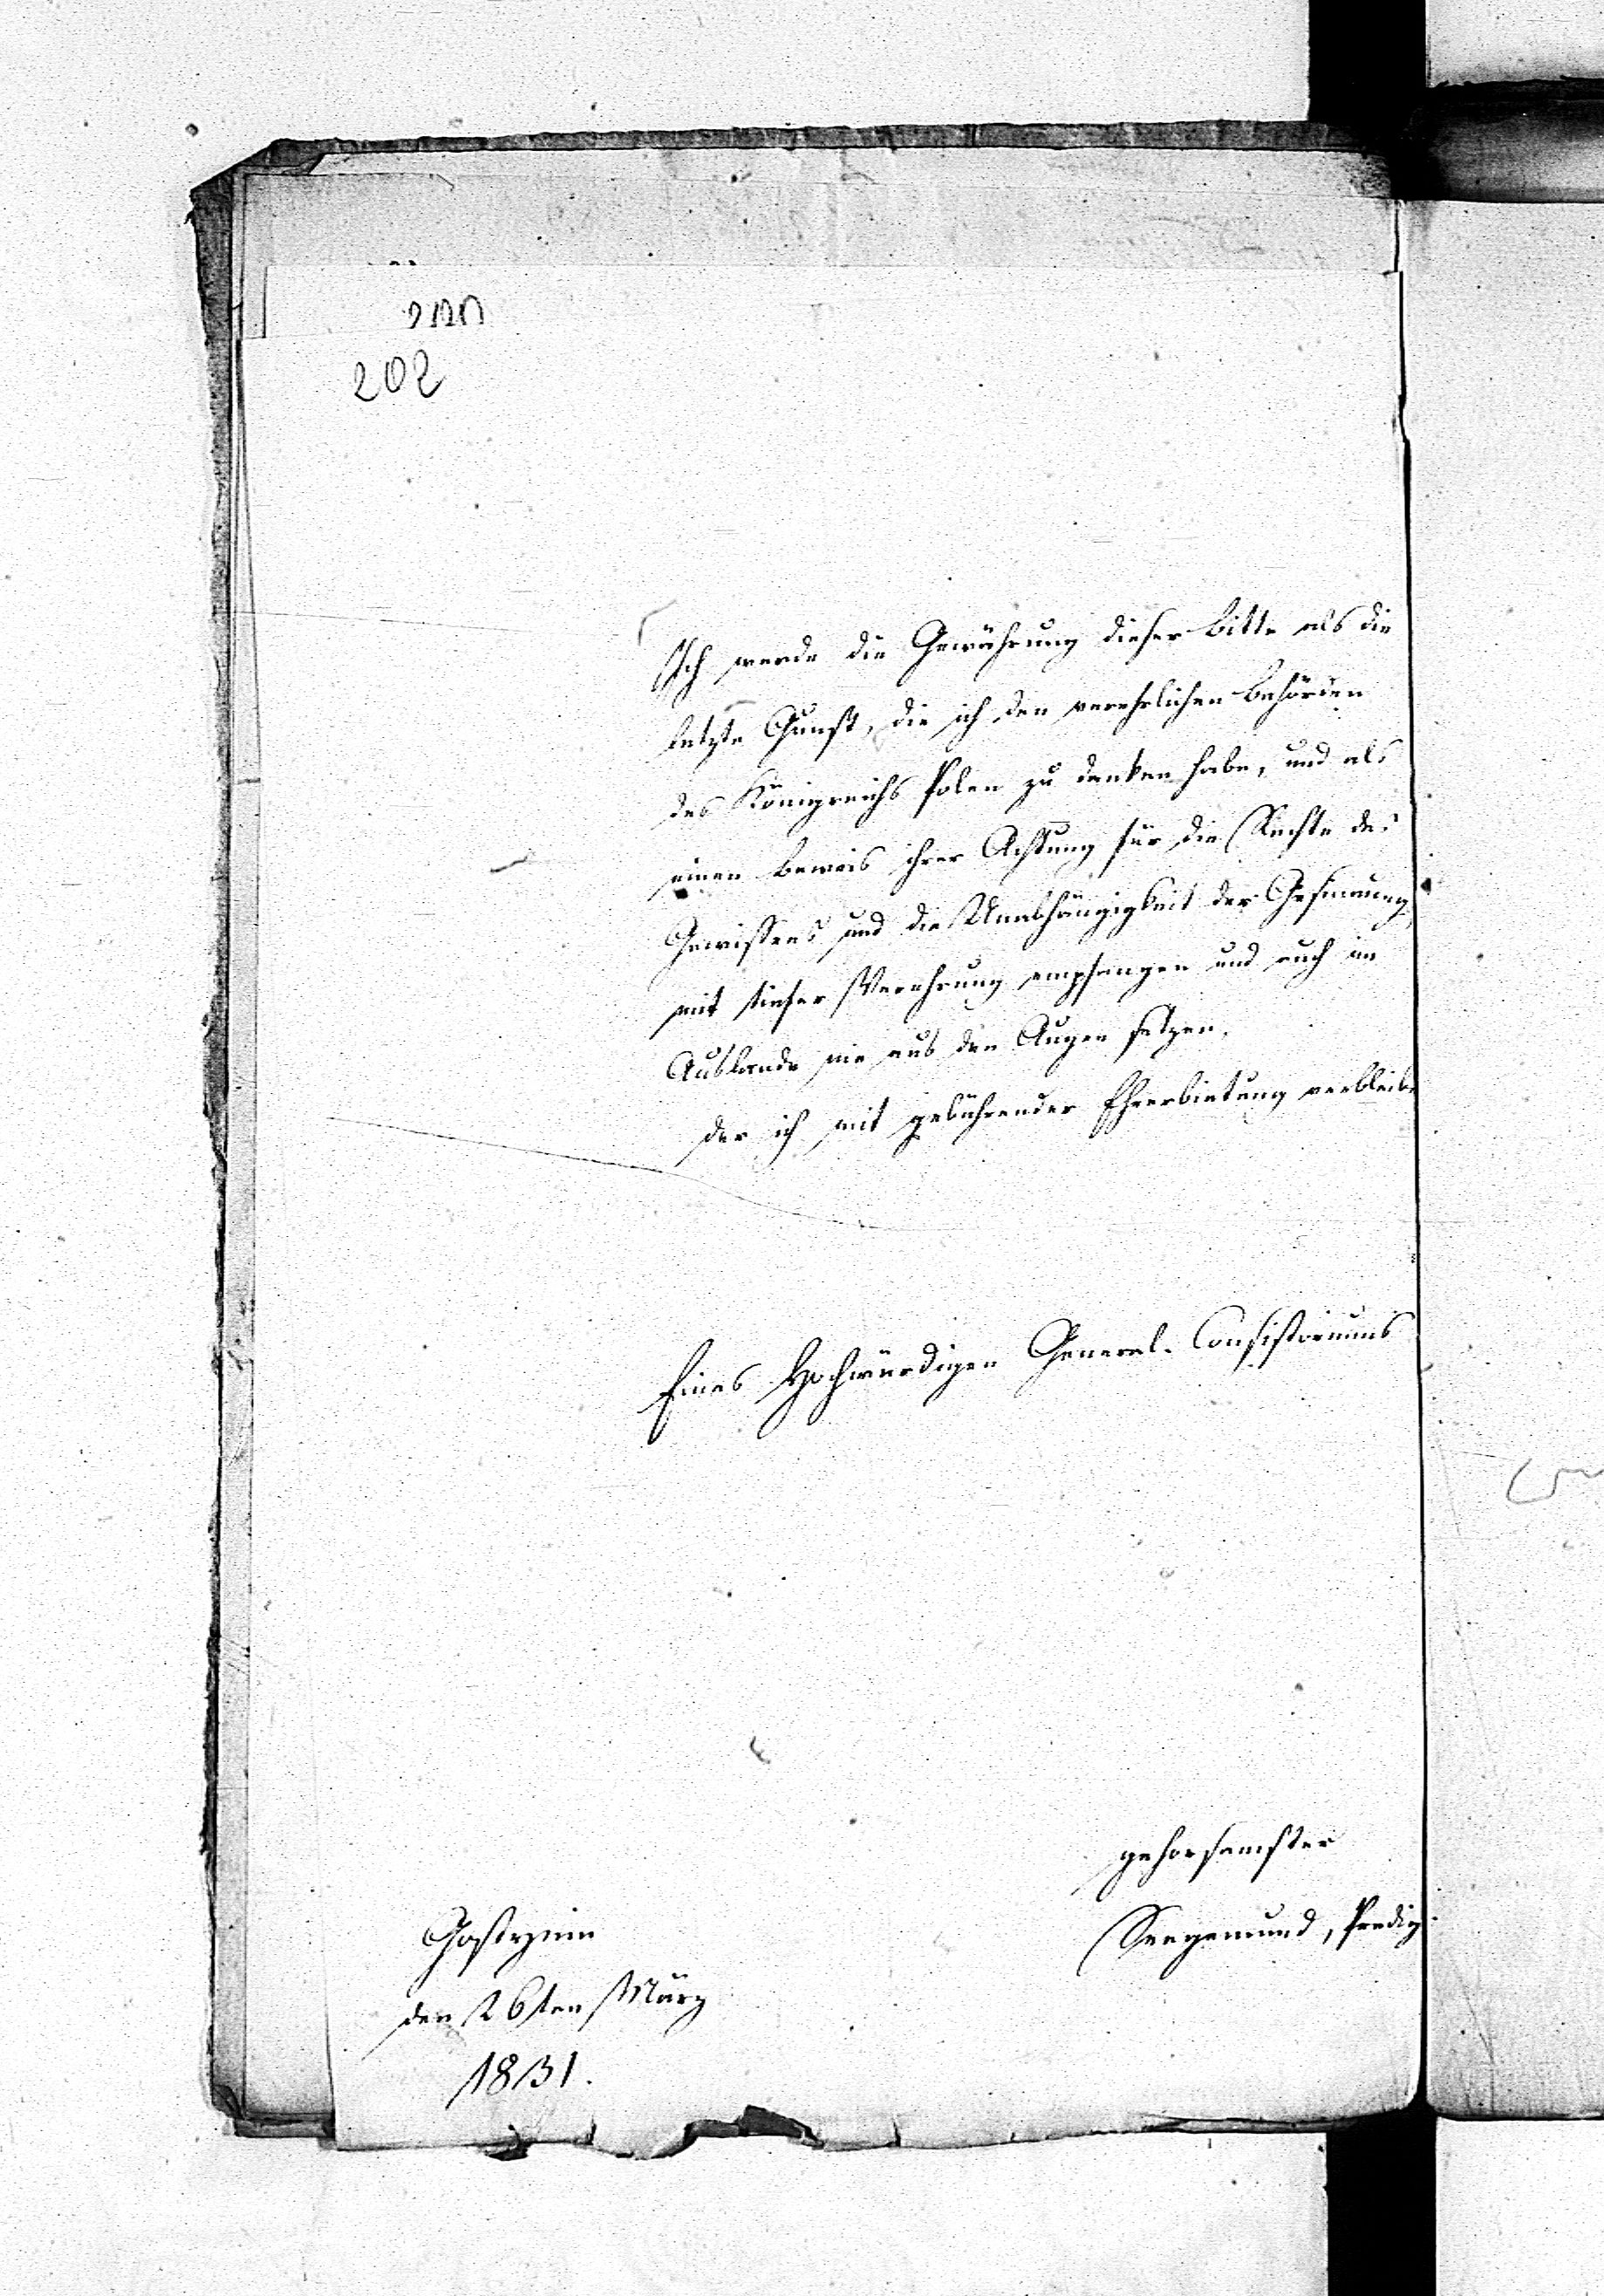 202
Ich werde die Gewährung dieser Bitte als die
letzte Gunst, die ich den verehrlichen Behörden
des Königreichs Polen zu danken habe, und als
einen Beweis ihrer Achtung für die Rechte des
Gewissens und die Unabhängigkeit der Gesinnung,
mit tiefer Verehrung empfangen und auch im
Auslande nie aus den Augen setzen.
der ich mit gebührender Ehrerbietung verbleibe
Eines Hochwürdigen General-Consistoriums
gehorsamster
Seegemund, Predig.
Gostynin
den 26ten März
1831.